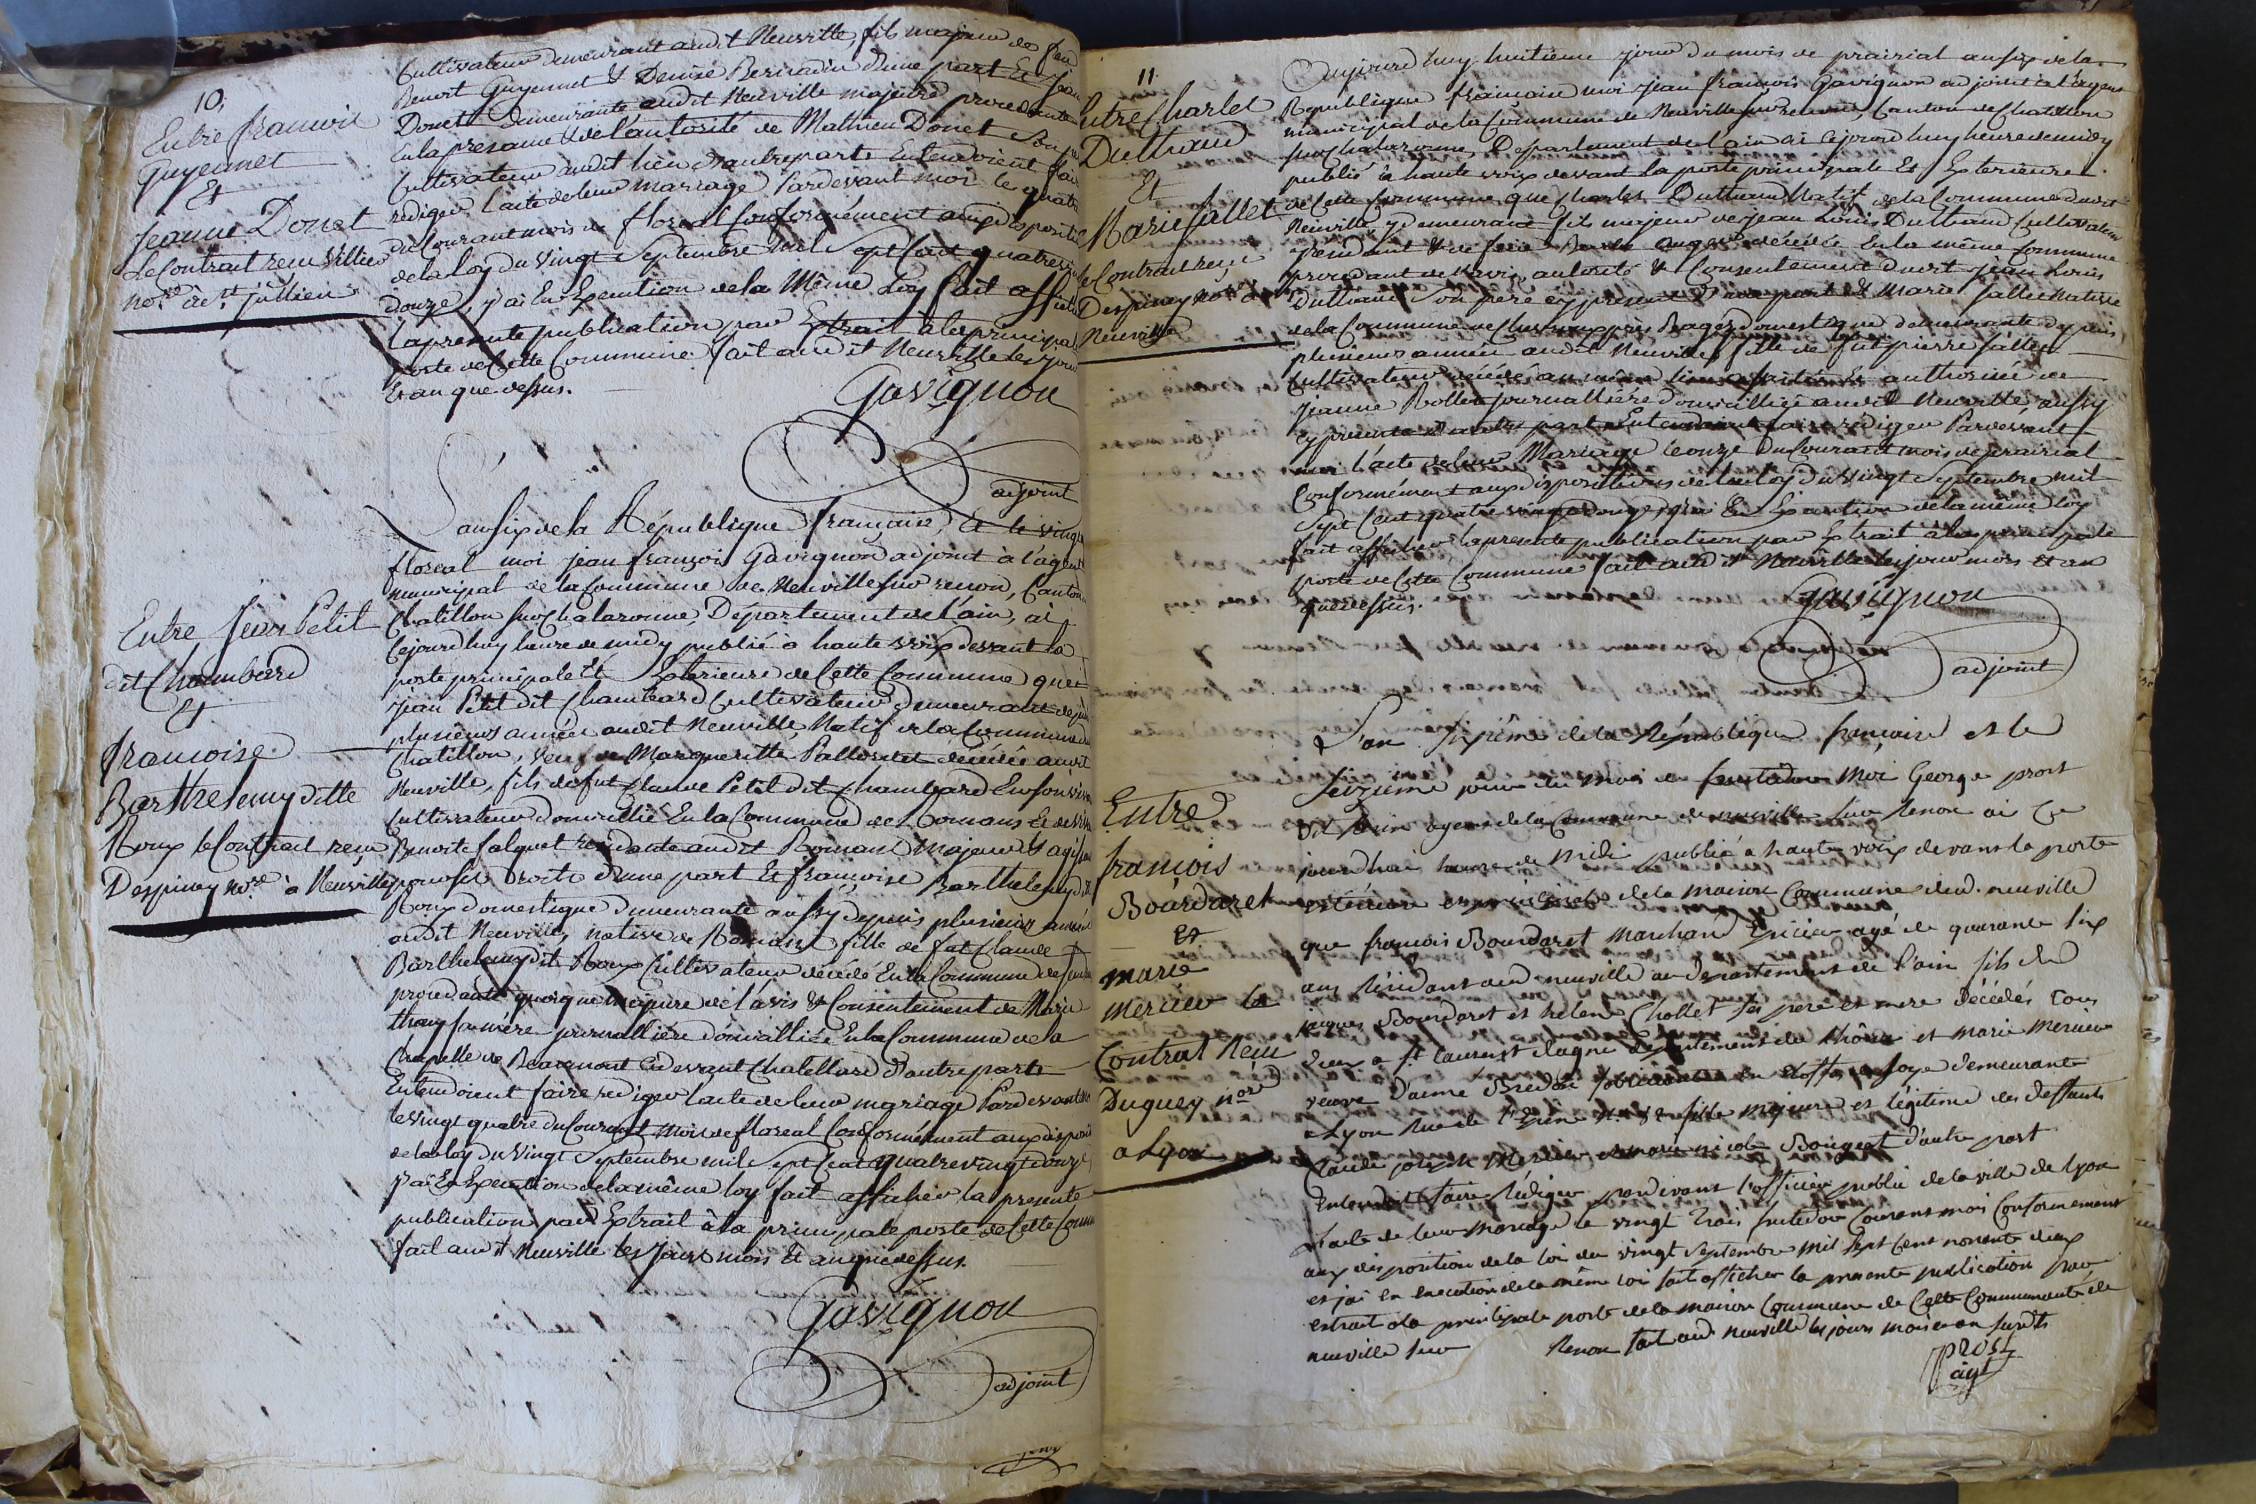 10.
Entre francois
Guyennet
Et
Jeanne Donet
Le Contrat recu Villier
no.re à st jullien
Cultivateur demeurant audit Neuville, fils majeur de feu
Benoit Guyennet & Denise Bernadin d'une part Et Jeanne
Donet demeurante audit Neuville majeure procedante
En la presence & de l'autorité de Mathieu Donet son père
Cultivateur audit lieu d'autre part, Entendoient faire
rediger l'acte de leur mariage Pardevant moi le quatre
du Courant mois de floreal Conformément aux dispositions
de la loy du Vingt Septembre mil Sept Cent quatre vingt
douze, j'ai En Execution de la Même Loy fait afficher
la presente publication par Extrait à la principale
porte de Cette Commune. fait audit Neuville les jour
Et an que dessus.
Gavignon
adjoint
Entre Jean Petit
dit Chambard
Et
francoise
Barthelemy ditte
Roux le Contrat recu
Despiney no.re à Neuville
L'an six de la République française, Et le vingt
floreal moi jean françois Gavignon adjoint à l'agent
municipal de la Commune de Neuville sur renon, Canton
Chatillon sur Chalaronne, Departement de l'ain, ai
Cejourd'huy heure de midy publié à haute voix devant la
porte principale Et Exterieure de Cette Commune que
jean Petit dit Chambard Cultivateur demeurant depuis
plusieurs année audit Neuville, Natif de la Commune de
Chatillon, Veuf de Margueritte décédée audit
Neuville, fils de fut Claude Petit dit Chambard En son vivant
Cultivateur domicillié En la Commune de Romans Et de
Benoite falquet residante audit Romans Majeur & agissant
pour ses droits d'une part Et françoise Barthelemy dit
Roux domestique demeurante aussy depuis plusieurs année
audit Neuville, native de Romans fille de fut Claude
Barthelemy dit Roux Cultivateur décédé En la Commune de
procedante quoique majeure de l'avis & Consentement de Marie
sa mère journallière domicilliée En la Commune de la
Chapelle de Beaumont Cidevant Chatellard d'autre part
Entendoient faire rediger l'acte de leur mariage Pardevant moi
le vingt quatre du Courant mois de floreal Conformément aux dispositions
de la loy du Vingt Septembre mil Sept Cent quatre vingt douze,
j'ai En Execution de la même loy fait afficher la presente
publication par Extrait à la principale porte de Cette Commune
fait audit Neuville les Jour mois Et an que dessus.
Gavignon
adjoint
11.
Entre Charlet
Duthaud
Et
Marie fallet
le Contrat reçu
Despiney no.re à
Neuville
Aujourd'huy huitieme jour du mois de prairial an six de la
Republique française moi jean françois Gavignon adjoint à l'agent
municipal de la Commune de Neuville sur renon, Canton de Chatillon
sur Chalaronne, Departement de l'ain ai Cejourd'huy heure de midy
publié à haute voix devant la porte principale Et Exterieure
de Cette Commune que Charlet Duthaud Natif de la Commune dudit
Neuville, y demeurant fils majeur de jean Louis Duthaud Cultivateur
décédée En la même Commune
procedant de l'avis, autorité & Consentement dudit jean Louis
Duthaud son père cy present d'une part & Marie fallet Native
de la Commune de près Bagé domestique demeurante depuis
plusieurs année audit Neuville, fille de fut pierre fallet
Cultivateur décédé au même lieu assistée Et authorisée de
jeanne Rollet journallière domicilliée audit Neuville, aussy
cy presente d'autre part Entendoient faire rediger Pardevant
moi l'acte de leur Mariage le onze du Courant mois de prairial
Conformément aux dispositions de la loy du Vingt Septembre mil
Sept Cent quatre vingt douze, j'ai En Execution de la même loy
fait afficher la presente publication par Extrait à la principale
porte de Cette Commune fait audit Neuville les jour mois Et an
que dessus.
Gavignon
adjoint
Entre
françois
Bourdaret
et
marie
mercier le
Contrat Reçu
Duguey nore
a Lyon
L'an sixième de la République française et le
seizieme jour du mois de fructidor Moi George prost
agent de la Commune de neuville sur Renon ai Ce
jourd'hui heure de midi publié a haute voix devant la porte
extérieure et principale de la maison Commune dud. neuville
que françois Bourdaret Marchand Epicier agé de quarante six
ans Résidant aud neuville au departement de l'ain fils de
jaques Bourdaret et helene Chollet ses pere et mere décédés tous
deux a st laurent dagny departement du Rhône et marie Mercier
veuve d'aimé Bredon fabricant en étoffe de soye demeurante
a Lyon Rue de fille majeure et légitime des deffunts
Claude joseph Mercier et marie nicole Bougeot d'autre part
Entendoit faire rédiger pardevant l'officier public de la ville de lyon
l'acte de leur mariage le vingt trois fructidor Courant mois Conformement
aux disposition de la loi du vingt septembre mil sept cent nonente deux
et jai en execution de la même loi fait afficher la presente publication par
extrait a la principale porte de la maison Commune de Cette Communauté de
neuville sur Renon fait aud neuville les jours mois et an susdits
prost
agt